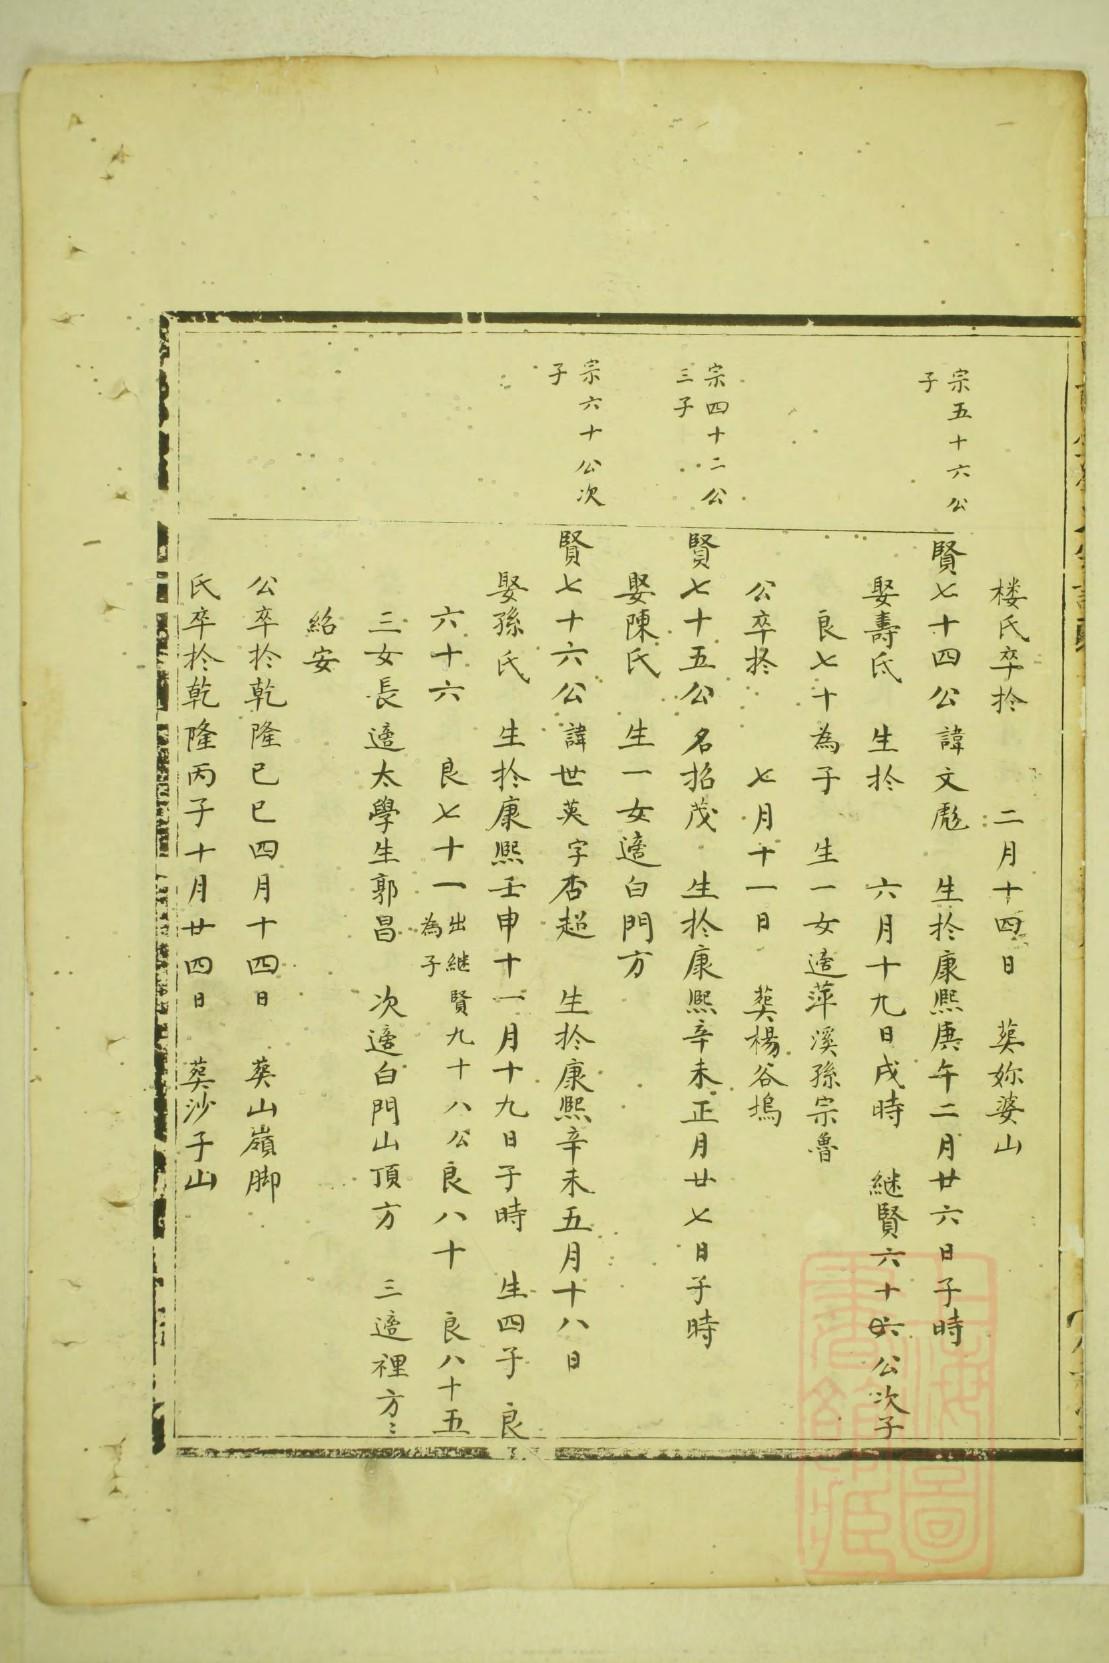 楼氏卒扵 二月十四日 葬妳婆山
宗五十六公子
賢七十四公諱文彪 生扵康熙庚午二月廿六日子時
娶壽氏 生扵 六月十九日戌時 継賢六十六公次子
良七十為子 生一女適萍溪孫宗魯
公卒扵 七月十一日 葬楊谷塢
宗四十二公三子
賢七十五公名招茂 生扵康熙辛未正月廿七日子時
娶陳氏 生一女適白門方
宗六十公次子
賢七十六公諱世英字杏超 生扵康熙辛未五月十八日
娶孫氏 生扵康熙壬申十一月十九日子時 生四子良
六十六 良七十一出継賢九十八公為子 良八十 良八十五
三女長適太學生郭昌 次適白門山頂方 三適裡方
紹安
公卒扵乾隆己巳四月十四日 葬山嶺脚
氏卒扵乾隆丙子十月廿四日 葬沙子山
上海圖書館藏